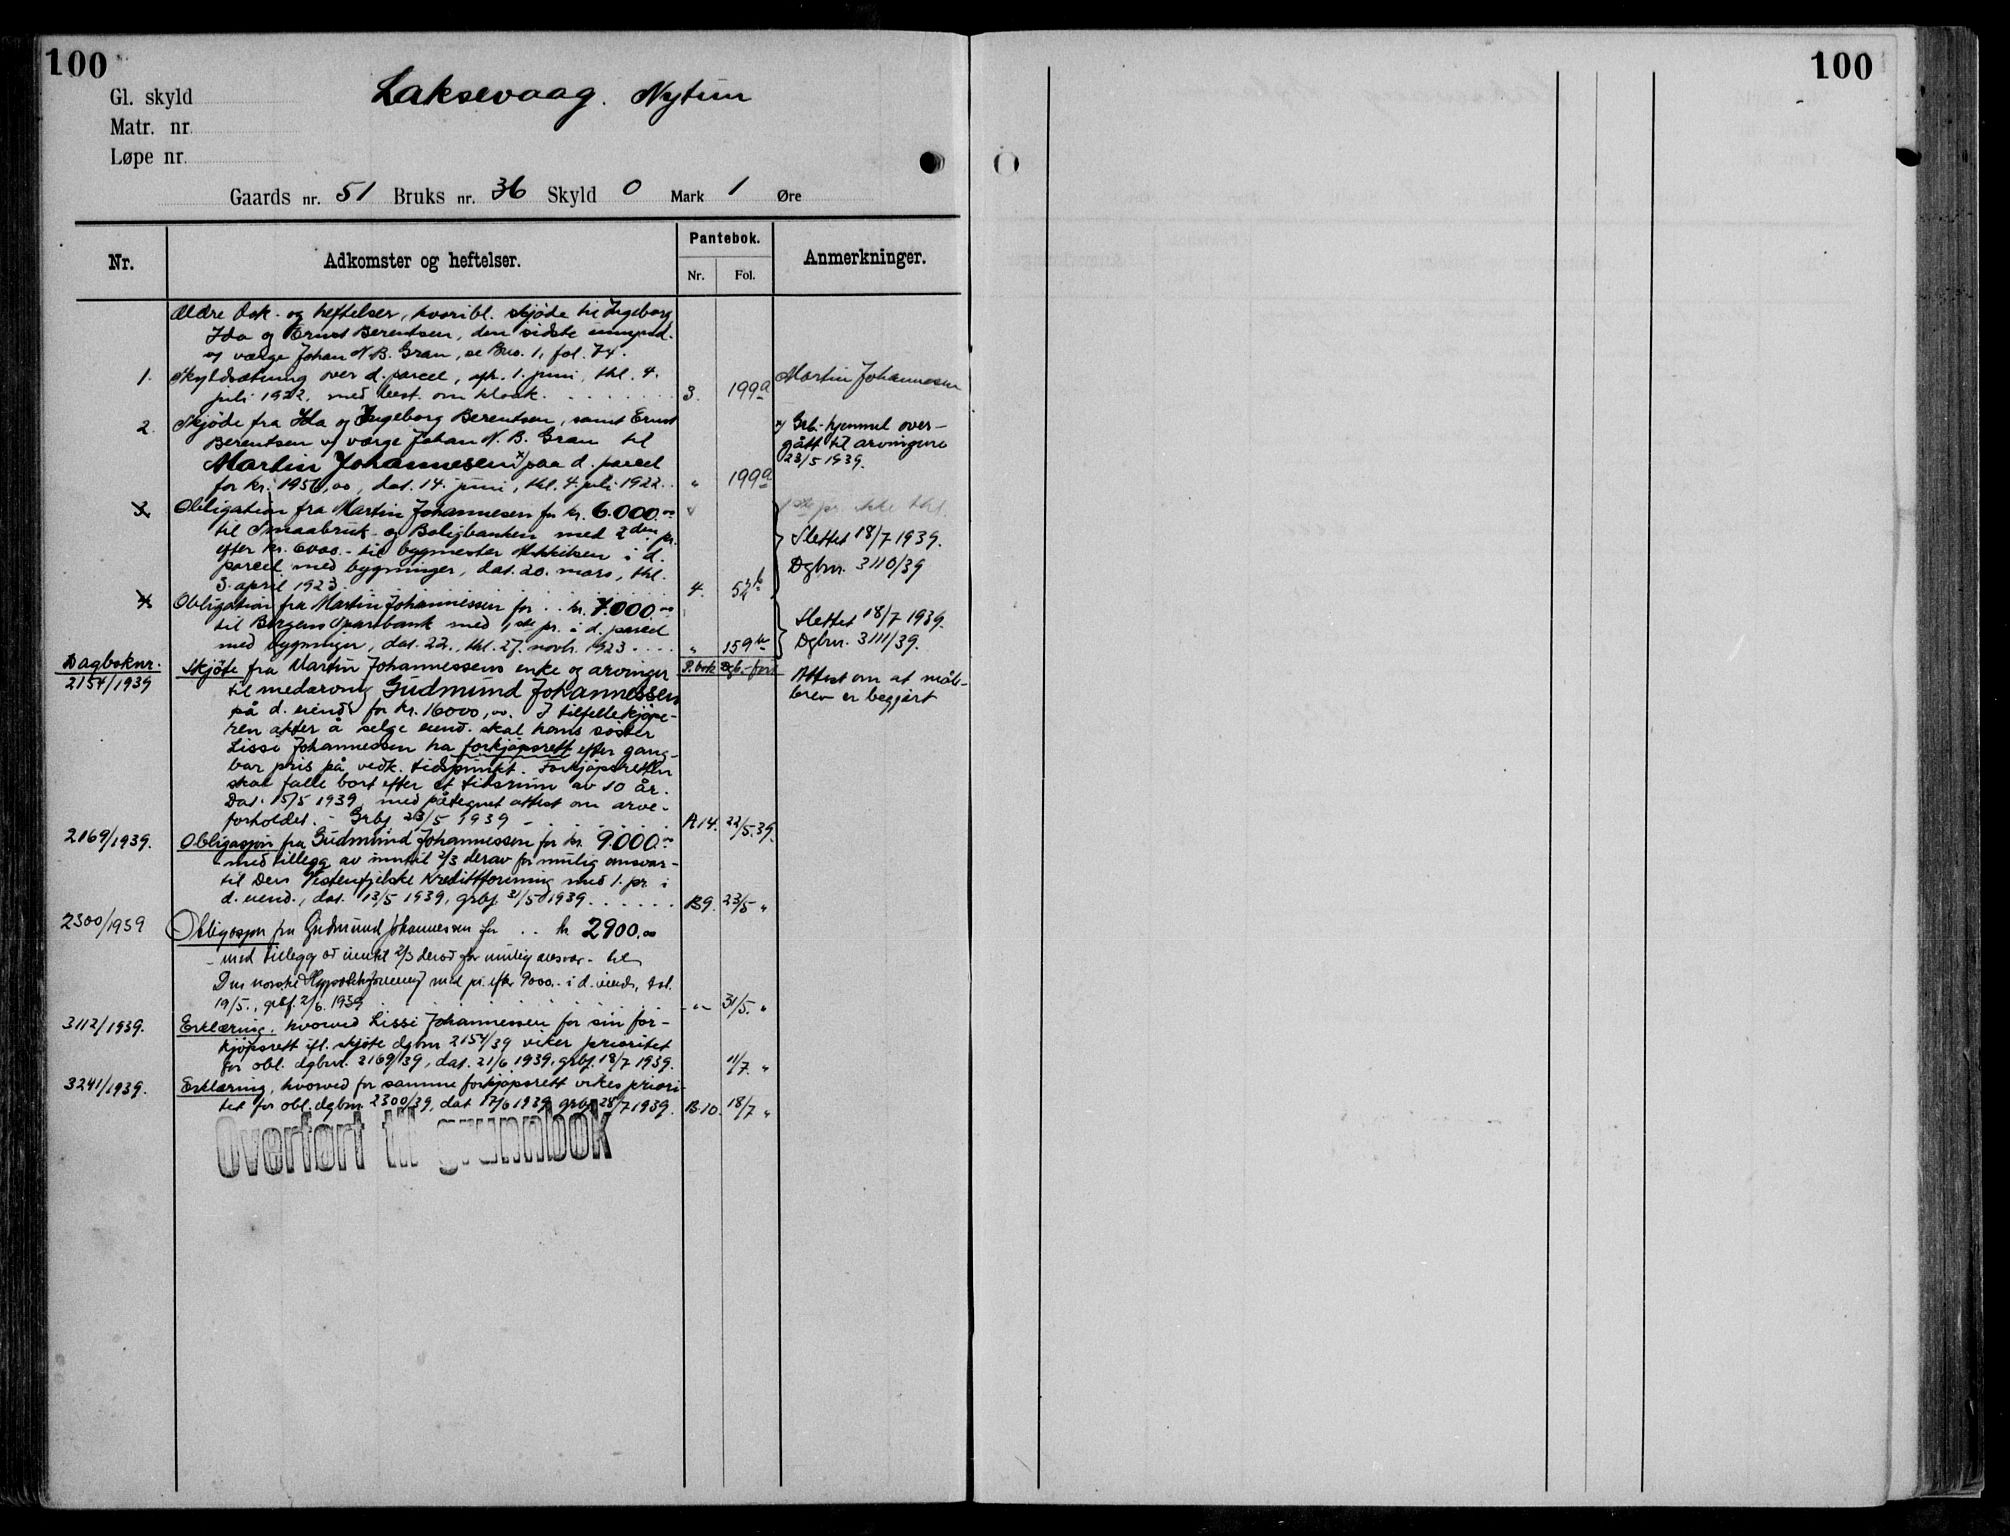 100
100
Gl. skyld
Laksevaag. Nytun
Matr. nr.
Løpe nr.
Gaards nr. 51 Bruks nr. 36 Skyld 0 Mark 1 Øre
Nr.
Adkomster og heftelser.
Pantebok.
Nr. Fol.
Anmerkninger.
Ældre dok.- og heftelser, hvoribl. skjøde til Ingeborg
Ida og Ernst Berentsen, den sidste umynd.
v/ værge Johan N. B. Gran, se Bus. 1, fol. 74.
1. Skyldsætning over d. parcel, afh. 1. juni, thl. 4. Martin Johannesen
juli 1922, med best. om kloak. 3. 199a
2. Skjøde fra Ida og Ingeborg Berentsen, samt Ernst x) Grb.-hjemmel over-
Berentsen v/ værge Johan N. B. Gran til gått til arvingene
Martin Johannesen x) paa d. parcel 23/5 1939.
for kr. 1950,00, dat. 14. juni, thl. 4. juli 1922. " 199a
3. Obligation fra Martin Johannesen for kr. 6.000.00 1ste pr. ikke thl.
til Smaabruk- og Boligbanken med 2den pr. Slettet 18/7 1939.
efter kr. 6000.- til bygmester Mikkelsen i d. Dgbnr. 3110/39
parcel med bygninger, dat. 20. mars, thl.
3. april 1923. 4. 52b
4. Obligation fra Martin Johannessen for .. kr. 7.000.00 Slettet 18/7 1939.
til Bergens Sparebank med 1ste pr. i d. parcel Dgbnr. 3111/39.
med bygninger, dat. 22., thl. 27. novbr. 1923. " 159b
Dagboknr. Skjøte fra Martin Johannessens enke og arvinger P.bok Dgb.-ført Attest om at måle-
2154/1939 til medarving Gudmund Johannessen brev er begjært
på d. eiend. for kr. 16000,00. I tilfelle kjøpe-
ren akter å selge eiend. skal hans søster
Lissi Johannessen ha forkjøpsrett efter gang-
bar pris på vedk. tidspunkt. Forkjøpsretten
skal falle bort efter et tidsrum av 10 år.
Dat. 15/5 1939, med påtegnet attest om arve-
forholdet. - Grbf. 23/5 1939 - A14. 22/5.39.
2169/1939. Obligasjon fra Gudmund Johannessen for kr. 9.000.00
- med tillegg av inntil 2/3 derav for mulig ansvar -
til Den Vestenfjelske Kredittforening med 1. pr. i
d. eiend., dat. 13/5 1939, grbf. 31/5 1939. B9. 23/5 "
2300/1939 Obligasjon fra Gudmund Johannessen for .. kr 2900.00
- med tillegg av inntil 2/3 derav for mulig ansvar - til
Den norske Hypotekforening med pr. efter 9000.- i d. eiend., dat.
19/5., grbf. 2/6. 1939 - " - 31/5. "
3112/1939. Erklæring, hvorved Lissi Johannessen for sin for-
kjøpsrett ifl. skjøte dgbnr 2154/39 viker prioritet
for obl. dgbnr. 2169/39, dat. 21/6 1939, grbf. 18/7 1939. 11/7. "
3241/1939. Erklæring, hvorved for samme forkjøpsrett vikes priori-
tet for obl. dgbnr 2300/39, dat 17/6 1939 grbf. 28/7 1939. B.10. 18/7 "
Overført til grunnbok